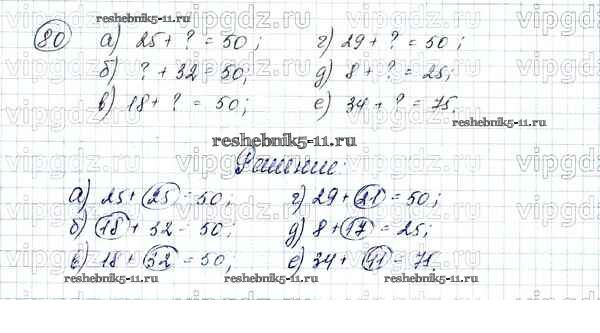 80 а) 25 + ? = 50; г) 29 + ? = 50;
б) ? + 32 = 50; д) 8 + ? = 25;
в) 18 + ? = 50; е) 34 + ? = 75.
Решение:
а) 25 + 25 = 50; г) 29 + 21 = 50;
б) 18 + 32 = 50; д) 8 + 17 = 25;
в) 18 + 32 = 50; е) 34 + 41 = 75.
reshebnik5-11.ru
reshebnik5-11.ru
reshebnik5-11.ru
reshebnik5-11.ru
reshebnik5-11.ru
reshebnik5-11.ru
vipgdz.ru